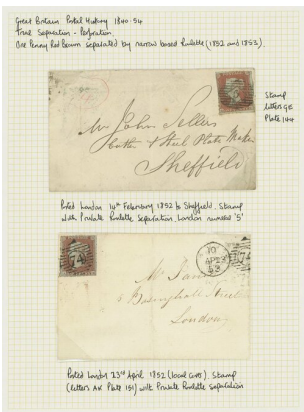 Great Britain Postal History 1840-54
Trial Separation - Perforation.
One Penny Red Brown separated by narrow based Roulette (1852 and 1853).
Stamp
letters GE
Plate 144
Mr John Sellers
& Steel Plate Maker
Sheffield
Posted London 14th February 1852 to Sheffield. Stamp
with Private Roulette Separation. London numeral '5'
74
10
AP 23
53
74
Mr
5 Basinghall Street
London
Posted London 23rd April 1852 (local cover). Stamp
(letters AK Plate 151) with Private Roulette Separation